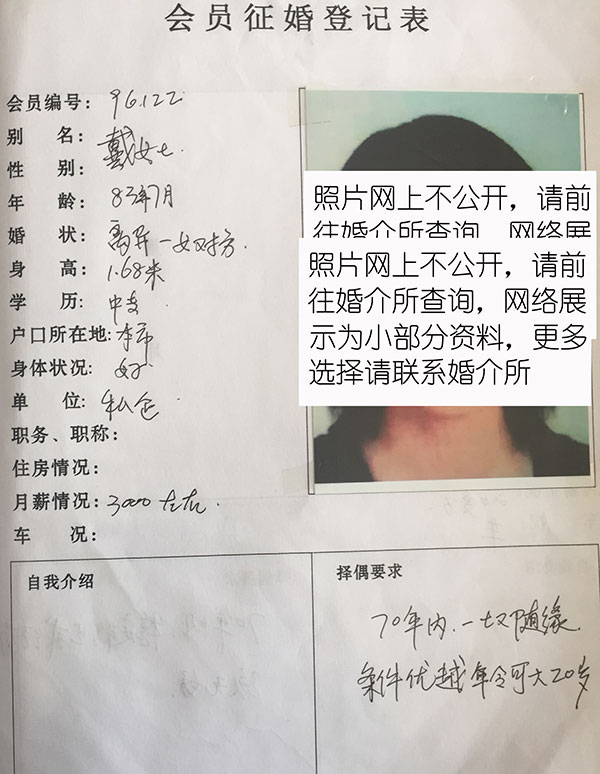 会员征婚登记表
会员编号: 96122
别 名: 戴女士.
性 别:
年 龄: 83年7月
婚 状: 离异一女对方.
身 高: 1.68米
学 历: 中专
户口所在地: 本市
身体状况: 好
单 位: 私企
职务、职称:
住房情况:
月薪情况: 3000左右.
车 况:
照片网上不公开，请前
往婚介所查询，网络展
照片网上不公开，请前
往婚介所查询，网络展
示为小部分资料，更多
选择请联系婚介所
自我介绍
择偶要求
70年内.一切随缘.
条件优越年令可大20岁